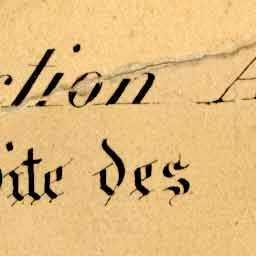 ction A
ite des